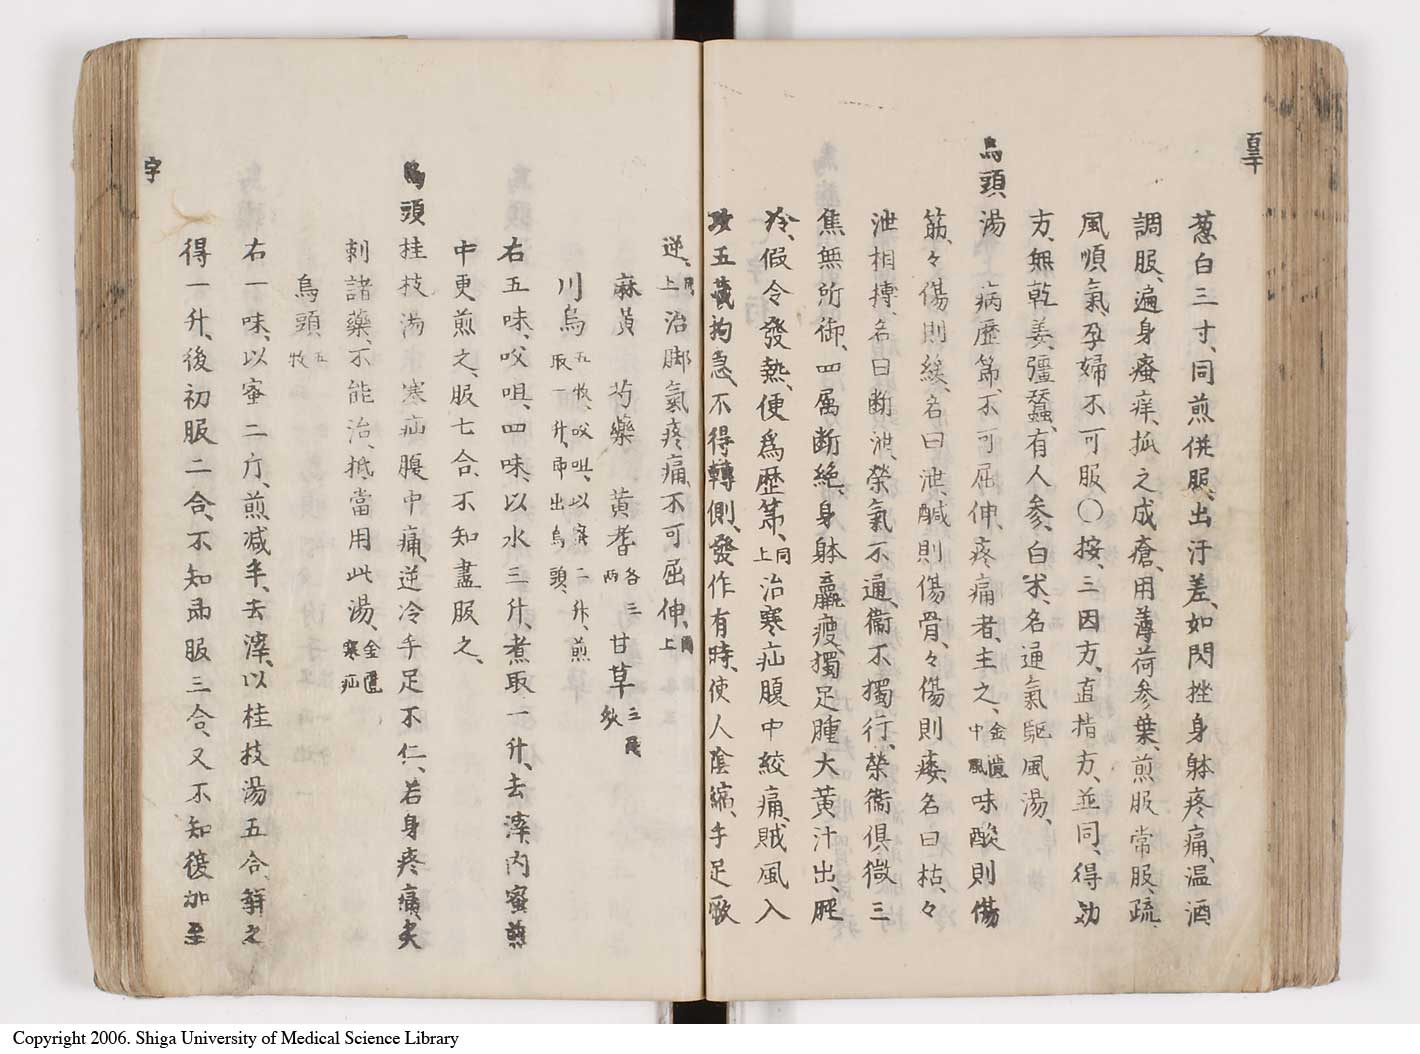 葱白三寸、同煎供服、出汗差、如閃挫身躰疼痛、温酒
調服、遍身瘙痒、抓之成瘡、用薄荷参葉、煎服常服、疏
風順氣、孕婦不可服、〇按、三因方、直指方、並同、得効
方、無乾姜、彊蠶、有人参、白朮、名通氣駈風湯、
烏頭湯 病歴節、不可屈伸、疼痛者、主之、金匱中風 味酸則傷
筋、々傷則緩、名曰泄、醎則傷骨、々傷則痿、名曰枯、々
泄相摶、名曰断泄、榮氣不通、衞不獨行、榮衞俱微、三
焦無所御、四属断絶、身躰羸瘦、獨足腫大、黄汁出、胫
冷、假令發熱、便為歴節、同上 治寒疝腹中絞痛、賊風入
攻五藏拘急、不得轉側、發作有時、使人陰縮、手足厥
逆、同上 治脚氣疼痛、不可屈伸、同上
麻黄 芍藥 黄耆各三両 甘草三両炙
川烏五枚、㕮咀、以蜜二升、煎取一升、即出烏頭、
右五味、㕮咀、四味、以水三升、煮取一升、去滓、内蜜煎
中更煎之、服七合、不知盡服之、
烏頭桂枝湯 寒疝腹中痛、逆冷手足不仁、若身疼痛、灸
刺諸藥、不能治、抵當用此湯、金匱寒疝
烏頭五枚
右一味、以蜜二斤、煎减半、去滓、以桂枝湯五合、觧之
得一升、後初服二合、不知即服三合、又不知復加至
百三十
宇
Copyright 2006. Shiga University of Medical Science Library